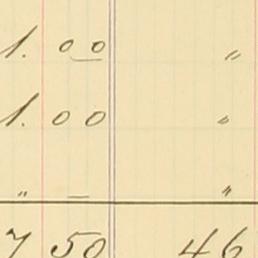 1. 00 "
1. 00 "
" — "
7 50 46